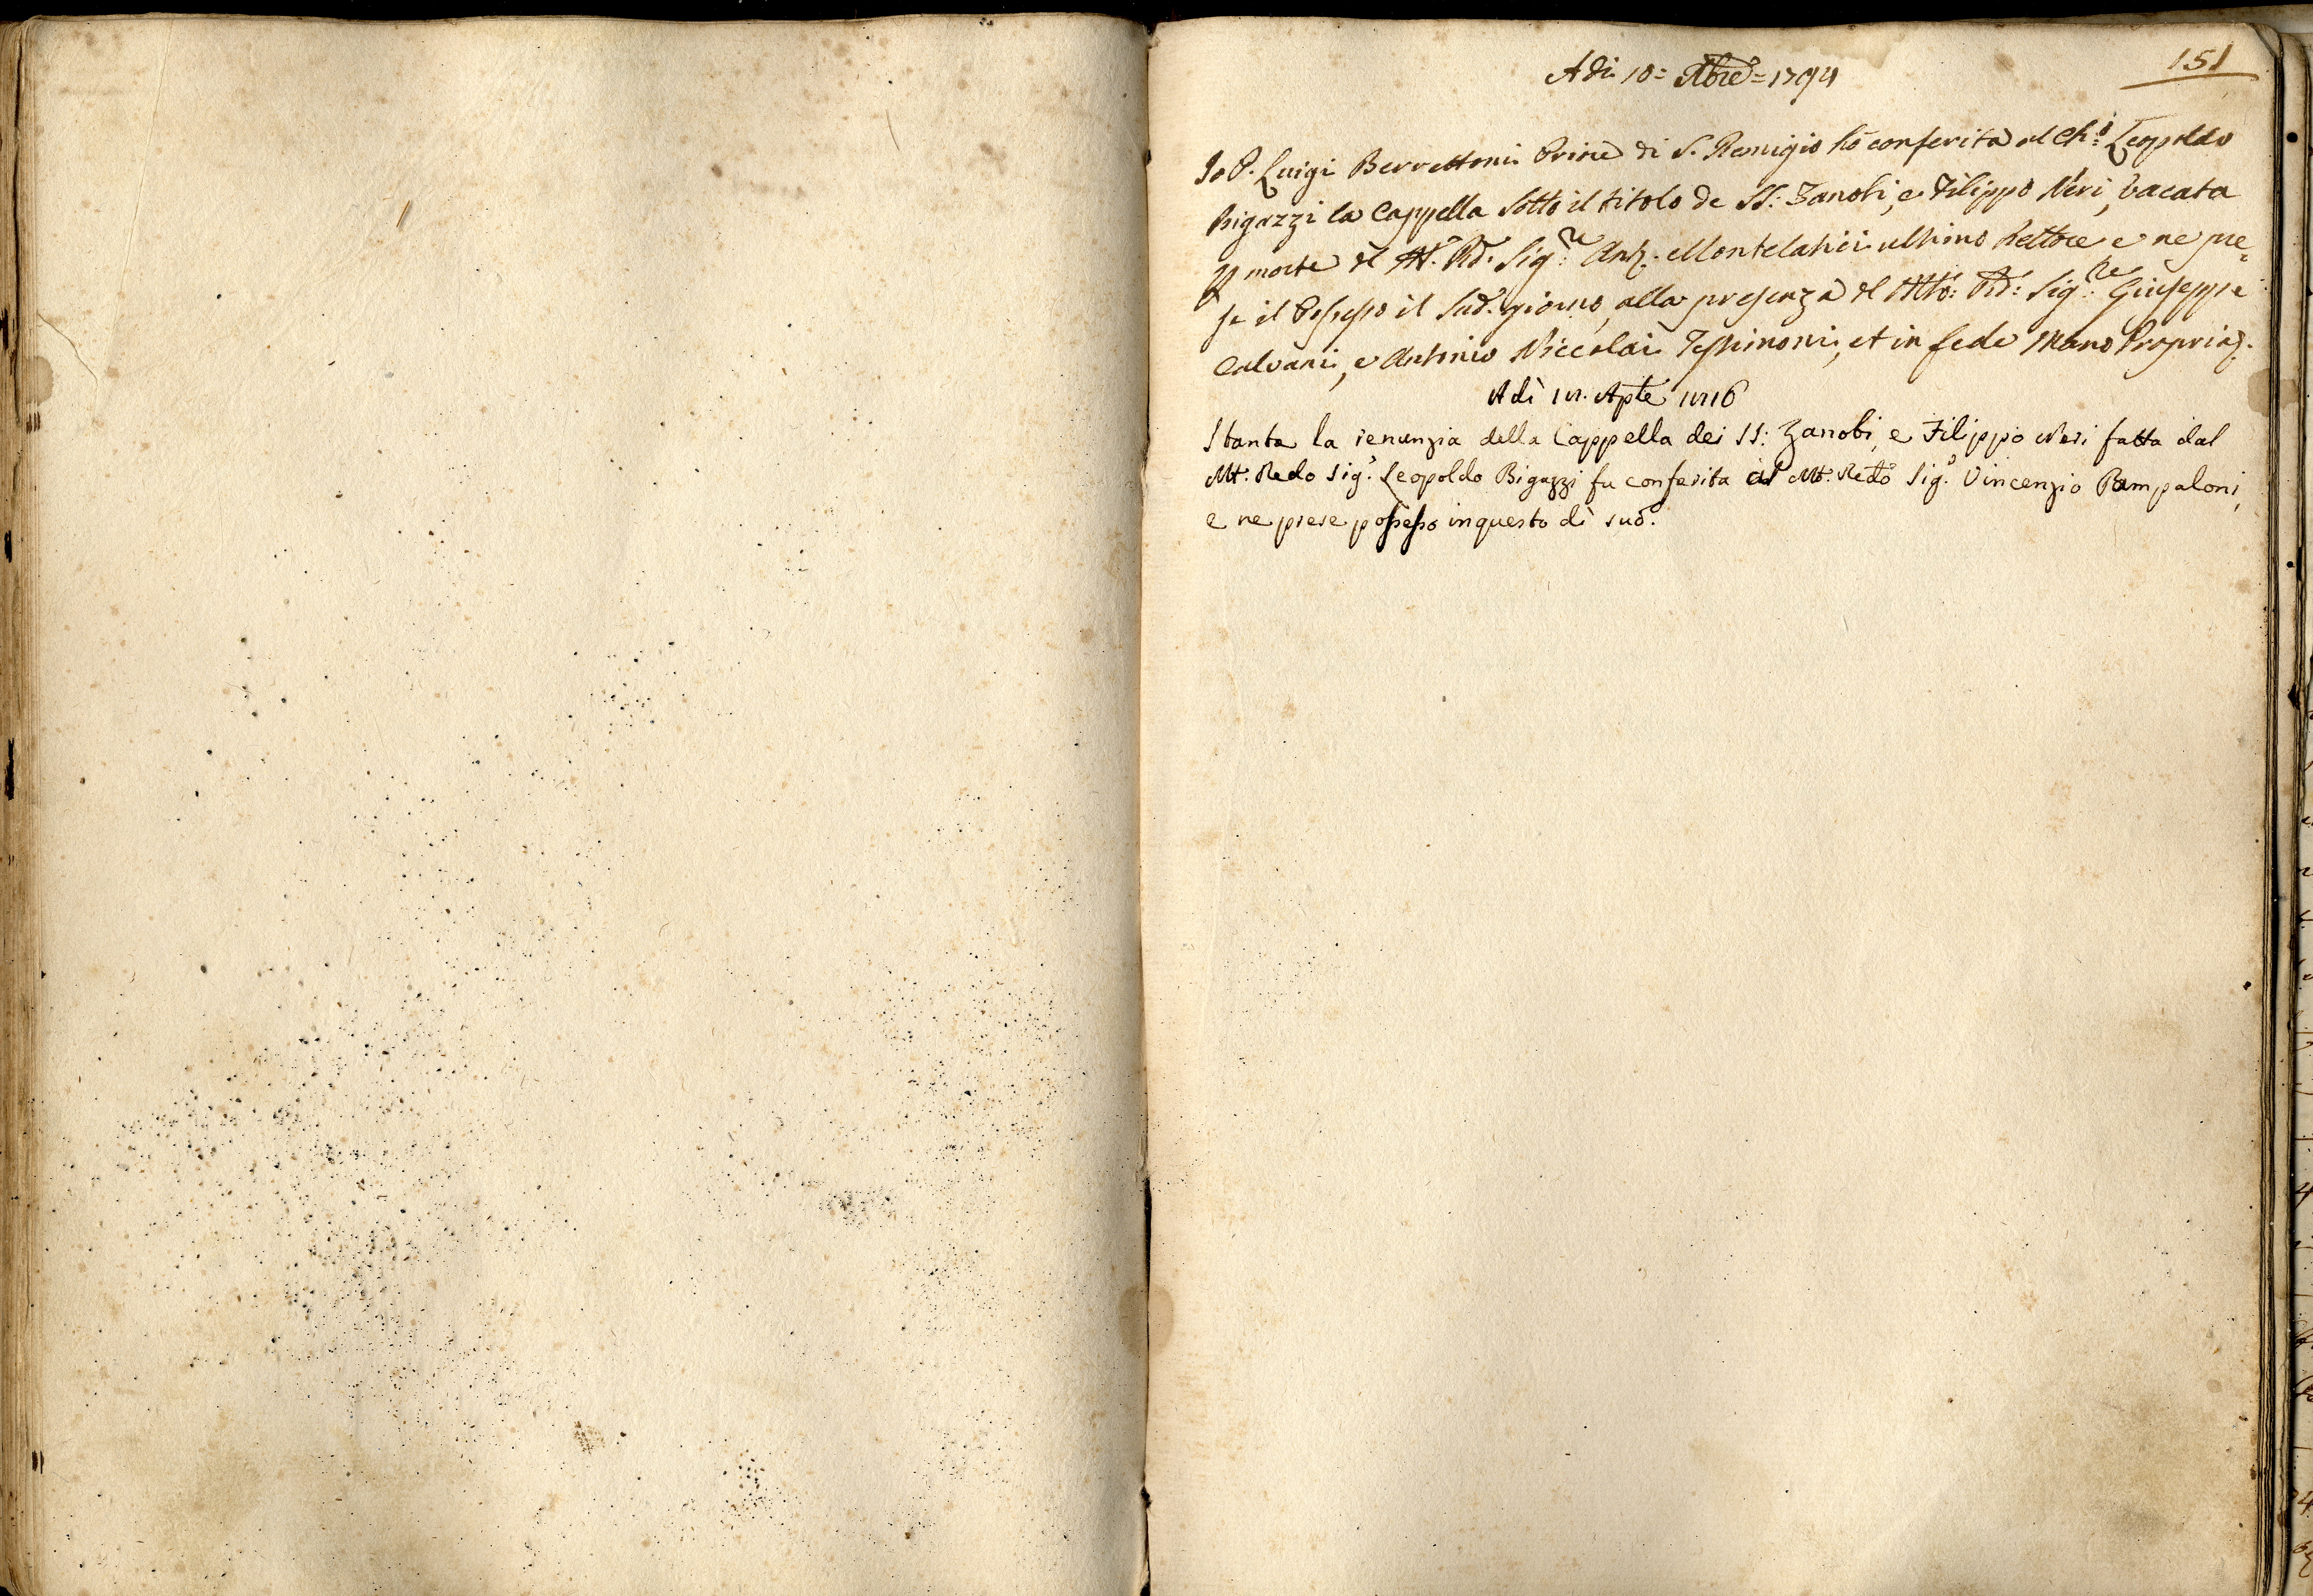 151
Adi 18= Xbre= 1794
Io P. Luigi Berrettoni Priore di S. Remigio hò conferita al Ch:º Leopoldo
Bigazzi la Cappella Sotto il titolo de SS: Zanobi, e Filippo Neri, vacata
p morte del M. Rd. Sig:re Ant. Montelatici ultimo Rettore e ne pre=
se il Possesso il Sud. giorno, alla presenza del Mto: Rd: Sig:re Giuseppe
Calvani, e Antonio Niccolai Testimoni, et in fede Mano Propria.
Adì Aple
Stante la renunzia della Cappella dei SS: Zanobi, e Filippo Neri fatta dal
Mt: Redo Sig.e Leopoldo Bigazzi fu conferita al Mt: Redo Sig.e Vincenzio Pampaloni,
e ne prese possesso in questo dì sud.o